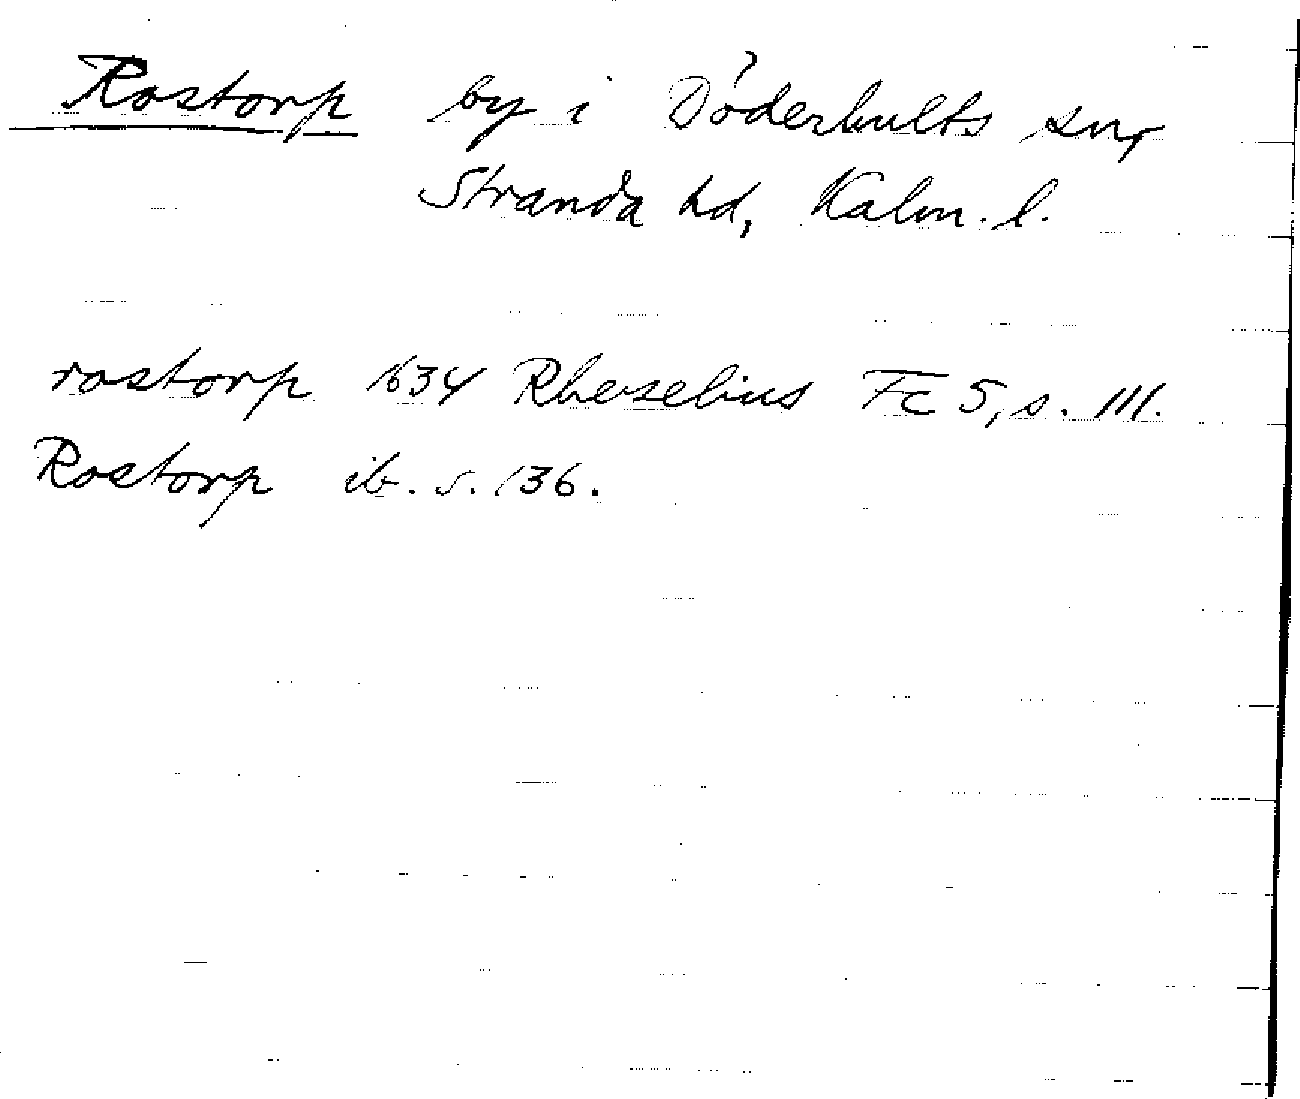 Rostorp by i Döderhults sn,
Stranda hd, Kalm. l.
rostorp 1634 Rhezelius Fc 5, s. 111.
Rostorp ib. s. 136.